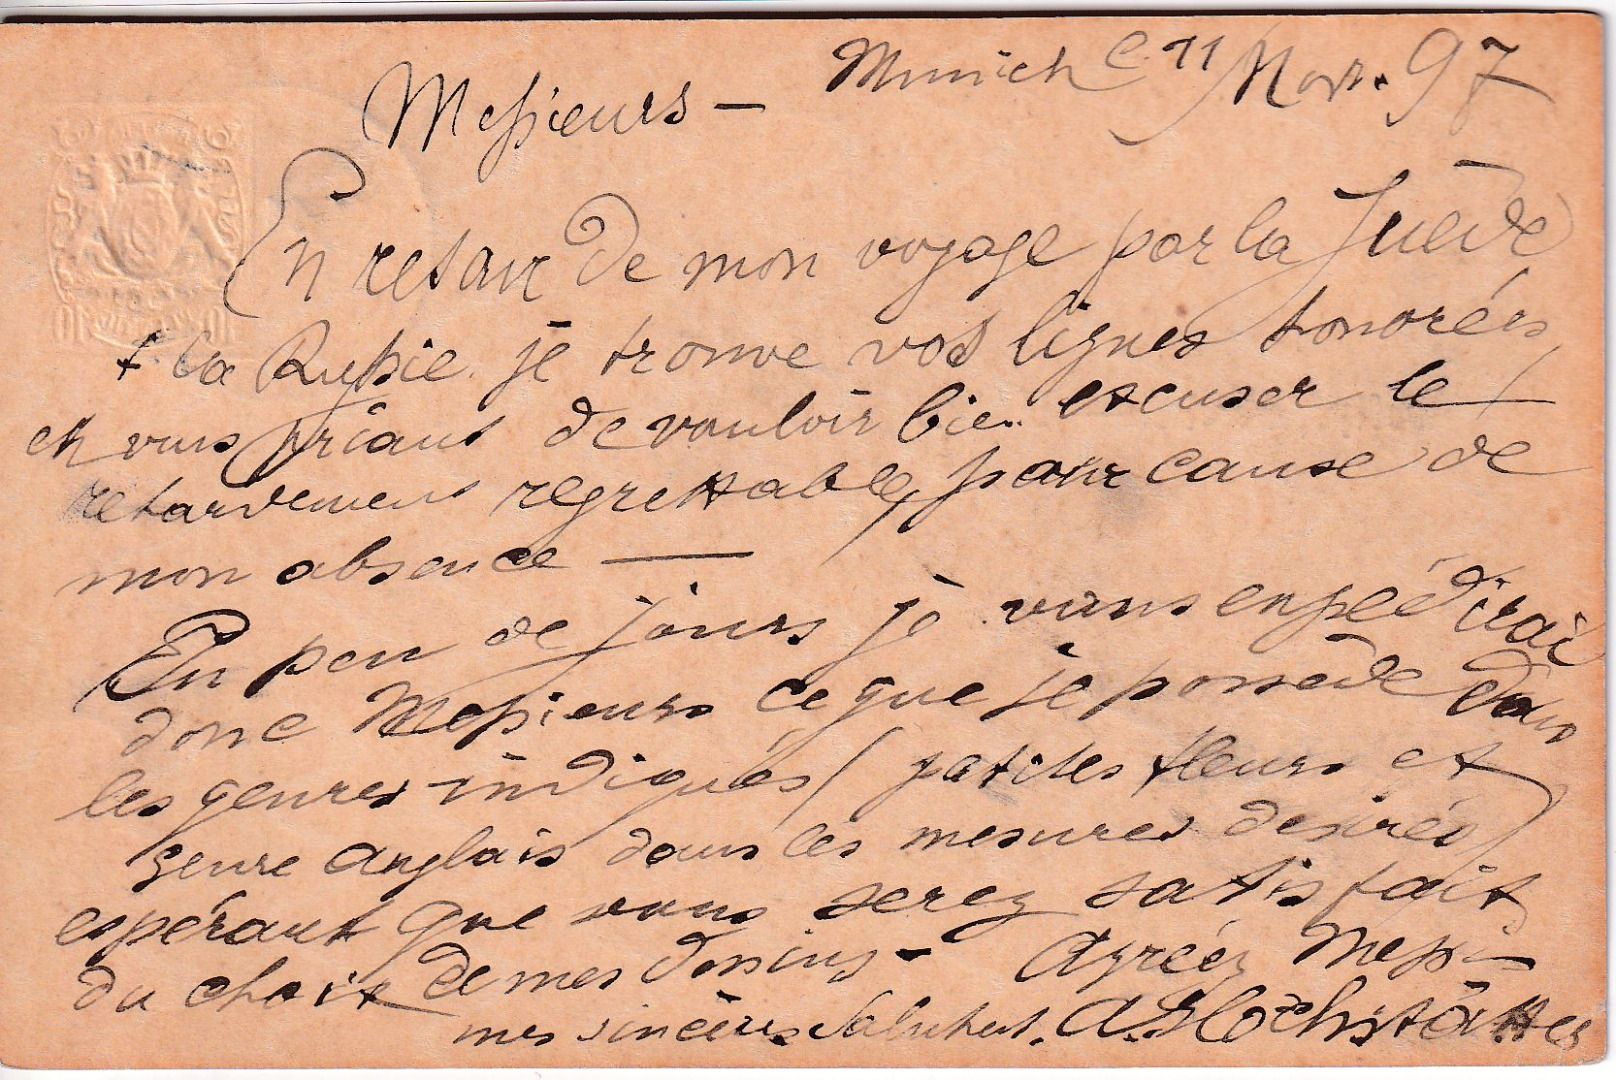 Munich c. 11 Nov. 97
Messieurs –
En retour de mon voyage par la Suède
& la Russie je trouve vos lignes honorées
et vous priant de vouloir bien excuser le
retardement regrettable, pour cause de
mon absence —
En peu de jours je vous enpédirai
donc Messieurs ce que je possède dans
les genres indiqués (petites fleurs et
genre anglais dans les mesures desirés)
espérant que vous serez satisfait
du choix de mes dessins – Agréez Mess–
mes sincères Salutat. A. Hochstätter